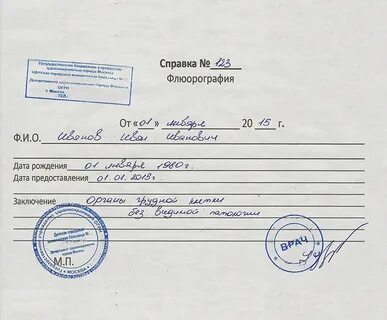 Государственное бюджетное учреждение
здравоохранения города Москвы
Департамента здравоохранения города Москвы
ОГРН
г. Москва
Справка № 123
Флюорография
От «01» января 2015 г.
Ф.И.О. Иванов Иван Иванович
Дата рождения 01 января 1980г.
Дата предоставления 01.01.2015г.
Заключение Органы грудной клетки
без видимой патологии
Детская городская
клиническая больница №
М.П.
• МОСКВА •
ВРАЧ